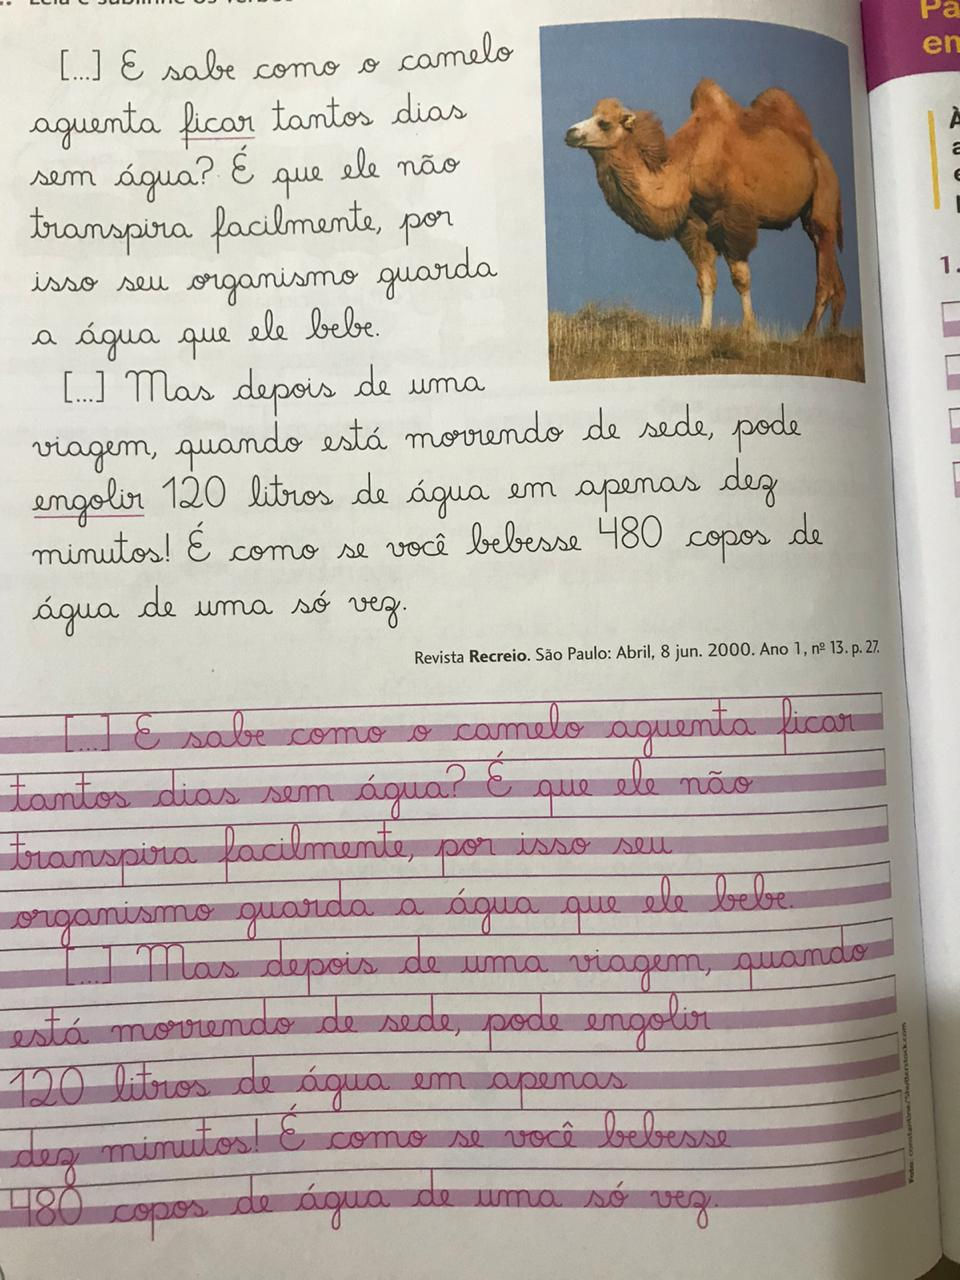 [...] E sabe como o camelo
aguenta ficar tantos dias
sem água? É que ele não
transpira facilmente, por
isso seu organismo guarda
a água que ele bebe.
[...] Mas depois de uma
viagem, quando está morrendo de sede, pode
engolir 120 litros de água em apenas dez
minutos! É como se você bebesse 480 copos de
água de uma só vez.
Revista Recreio. São Paulo: Abril, 8 jun. 2000. Ano 1, nº 13. p. 27.
[...] E sabe como o camelo aguenta ficar
tantos dias sem água? É que ele não
transpira facilmente, por isso seu
organismo guarda a água que ele bebe.
[...] Mas depois de uma viagem, quando
está morrendo de sede, pode engolir
120 litros de água em apenas
dez minutos! É como se você bebesse
480 copos de água de uma só vez.
Foto: constantine/Shutterstock.com
Pa
em
À
1.